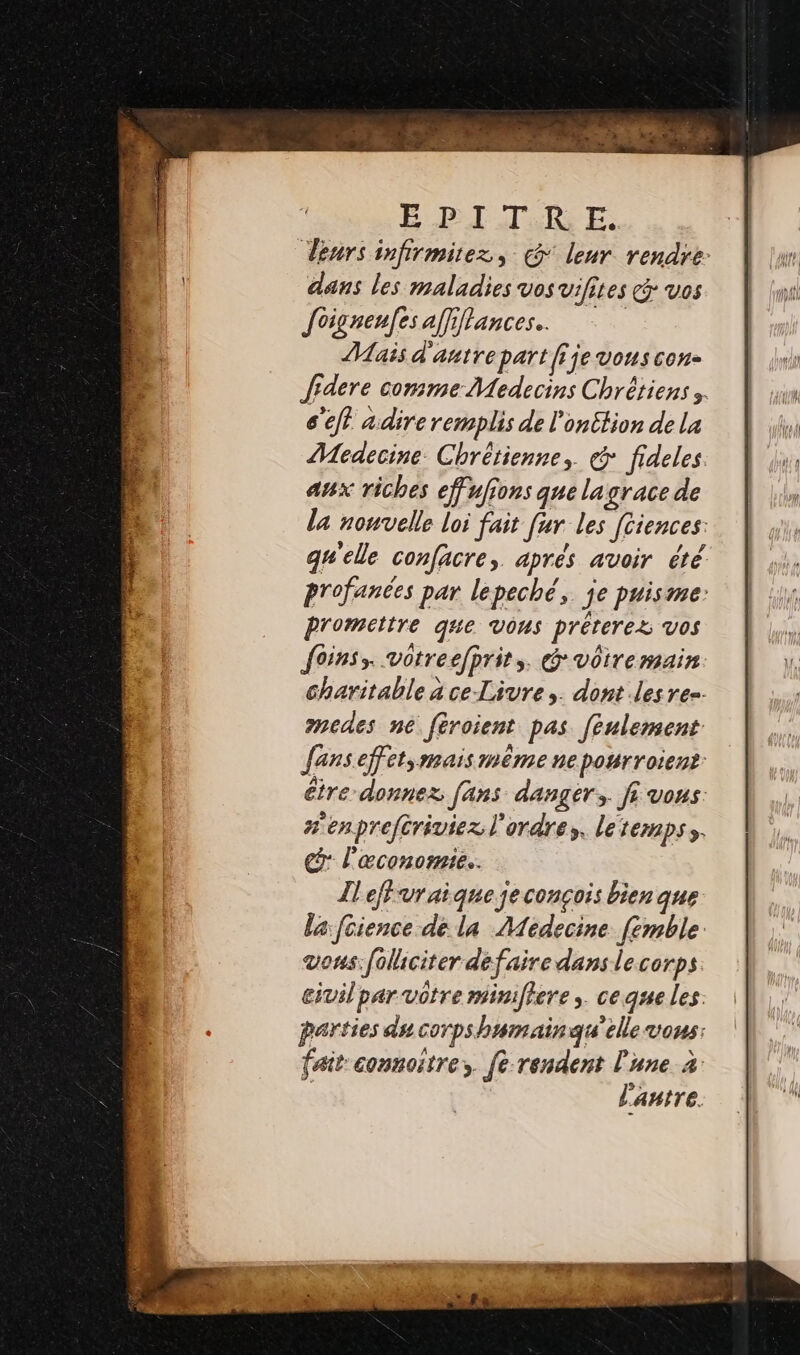 EPITRE.
leurs infirmitez, & leur rendre
dans les maladies vos visites & vos
ſoigneuſes aſſiſtances.
Mais d'autre part ſi je vous con-
ſidere comme Medecins Chrêtiens,
c'eſt à dire remplis de l'onction de la
Medecine Chrêtienne, & fideles
aux riches effuſions que la grace de
la nouvelle loi fait ſur les ſciences
qu'elle conſacre, aprés avoir été
profanées par le peché, je puis me
promettre que vous prêterez vos
ſoins, vôtre eſprit, & vôtre main
charitable à ce Livre, dont les re-
medes ne ſeroient pas ſeulement
ſans effet, mais même ne pourroient
être donnez ſans danger, ſi vous
n'en preſcriviez l'ordre, le temps,
& l'œconomie.
Il eſt vrai que je conçois bien que
la ſcience de la Medecine ſemble
vous ſolliciter de faire dans le corps
civil par vôtre miniſtere, ce que les
parties du corps humain qu'elle vous
fait connoître, ſe rendent l'une à
l'autre.